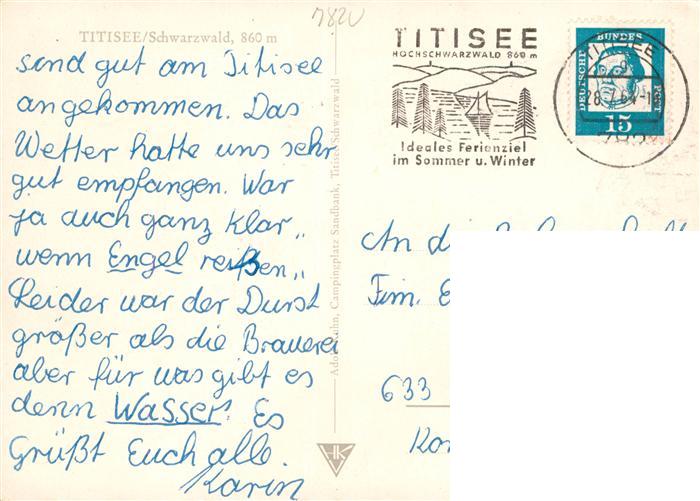 7820
TITISEE/Schwarzwald, 860 m
sind gut am Titisee
angekommen. Das
Wetter hatte uns sehr
gut empfangen. War
ja auch ganz klar „
wenn Engel reißen „
Leider war der Durst
größer als die Brauerei
aber für was gibt es
denn Wasser? Es
Grüßt Euch alle.
Karin
Campingplatz Sandbank, Titisee/Schwarzwald
HK
TITISEE
HOCHSCHWARZWALD 860 m
Ideales Ferienziel
im Sommer u. Winter
TITISEE
DEUTSCHE BUNDESPOST
15
An die
Fim. E
633